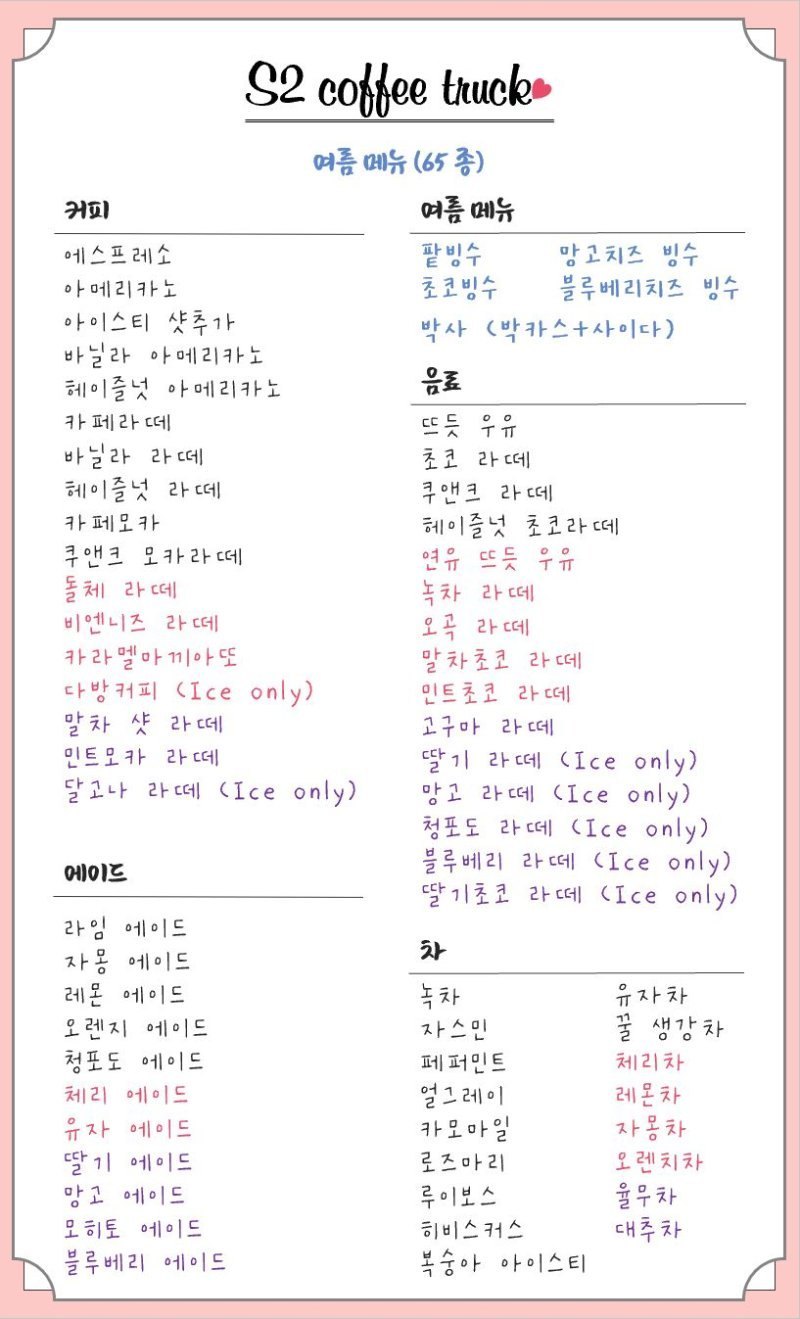 S2 coffee truck
여름 메뉴 (65 종)
커피
에스프레소
아메리카노
아이스티 샷추가
바닐라 아메리카노
헤이즐넛 아메리카노
카페라떼
바닐라 라떼
헤이즐넛 라떼
카페모카
쿠앤크 모카라떼
돌체 라떼
비엔니즈 라떼
카라멜마끼아또
다방커피 (Ice only)
말차 샷 라떼
민트모카 라떼
달고나 라떼 (Ice only)
에이드
라임 에이드
자몽 에이드
레몬 에이드
오렌지 에이드
청포도 에이드
체리 에이드
유자 에이드
딸기 에이드
망고 에이드
모히토 에이드
블루베리 에이드
여름 메뉴
팥빙수 망고치즈 빙수
초코빙수 블루베리치즈 빙수
박사 (박카스+사이다)
음료
뜨듯 우유
초코 라떼
쿠앤크 라떼
헤이즐넛 초코라떼
연유 뜨듯 우유
녹차 라떼
오곡 라떼
말차초코 라떼
민트초코 라떼
고구마 라떼
딸기 라떼 (Ice only)
망고 라떼 (Ice only)
청포도 라떼 (Ice only)
블루베리 라떼 (Ice only)
딸기초코 라떼 (Ice only)
차
녹차 유자차
자스민 꿀 생강차
페퍼민트 체리차
얼그레이 레몬차
카모마일 자몽차
로즈마리 오렌치차
루이보스 율무차
히비스커스 대추차
복숭아 아이스티